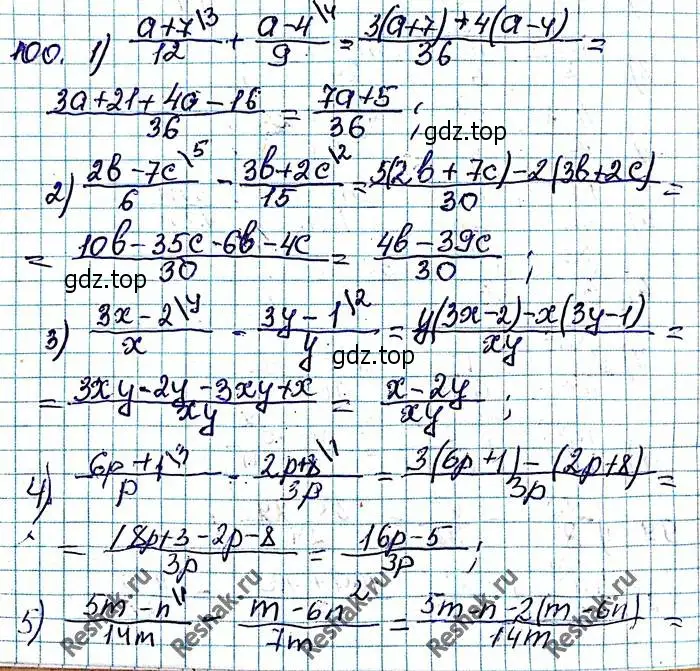 100. 1) (a+7\3)/12 + (a-4\4)/9 = (3(a+7)+4(a-4))/36 =
(3a+21+4a-16)/36 = (7a+5)/36 ;
gdz.top
2) (2b-7c\5)/6 - (3b+2c\2)/15 = (5(2b+7c)-2(3b+2c))/30 =
= (10b-35c-6b-4c)/30 = (4b-39c)/30 ;
gdz.top
gdz.top
3) (3x-2\y)/x - (3y-1\2)/y = (y(3x-2)-x(3y-1))/xy =
gdz.top
= (3xy-2y-3xy+x)/xy = (x-2y)/xy ;
4) (6p+1\3)/p - (2p+8\1)/3p = (3(6p+1)-(2p+8))/3p =
= (18p+3-2p-8)/3p = (16p-5)/3p ;
5) (5m-n\1)/14m - (m-6n\2)/7m = (5m-n-2(m-6n))/14m =
Reshak.ru
Reshak.ru
Reshak.ru
Reshak.ru